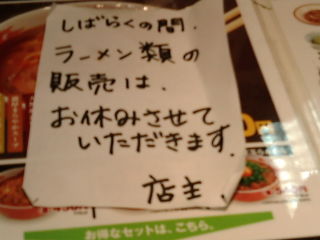 しばらくの間、
ラーメン類の
販売は、
お休みさせて
いただきます。
店主
お得なセットは、こちら。